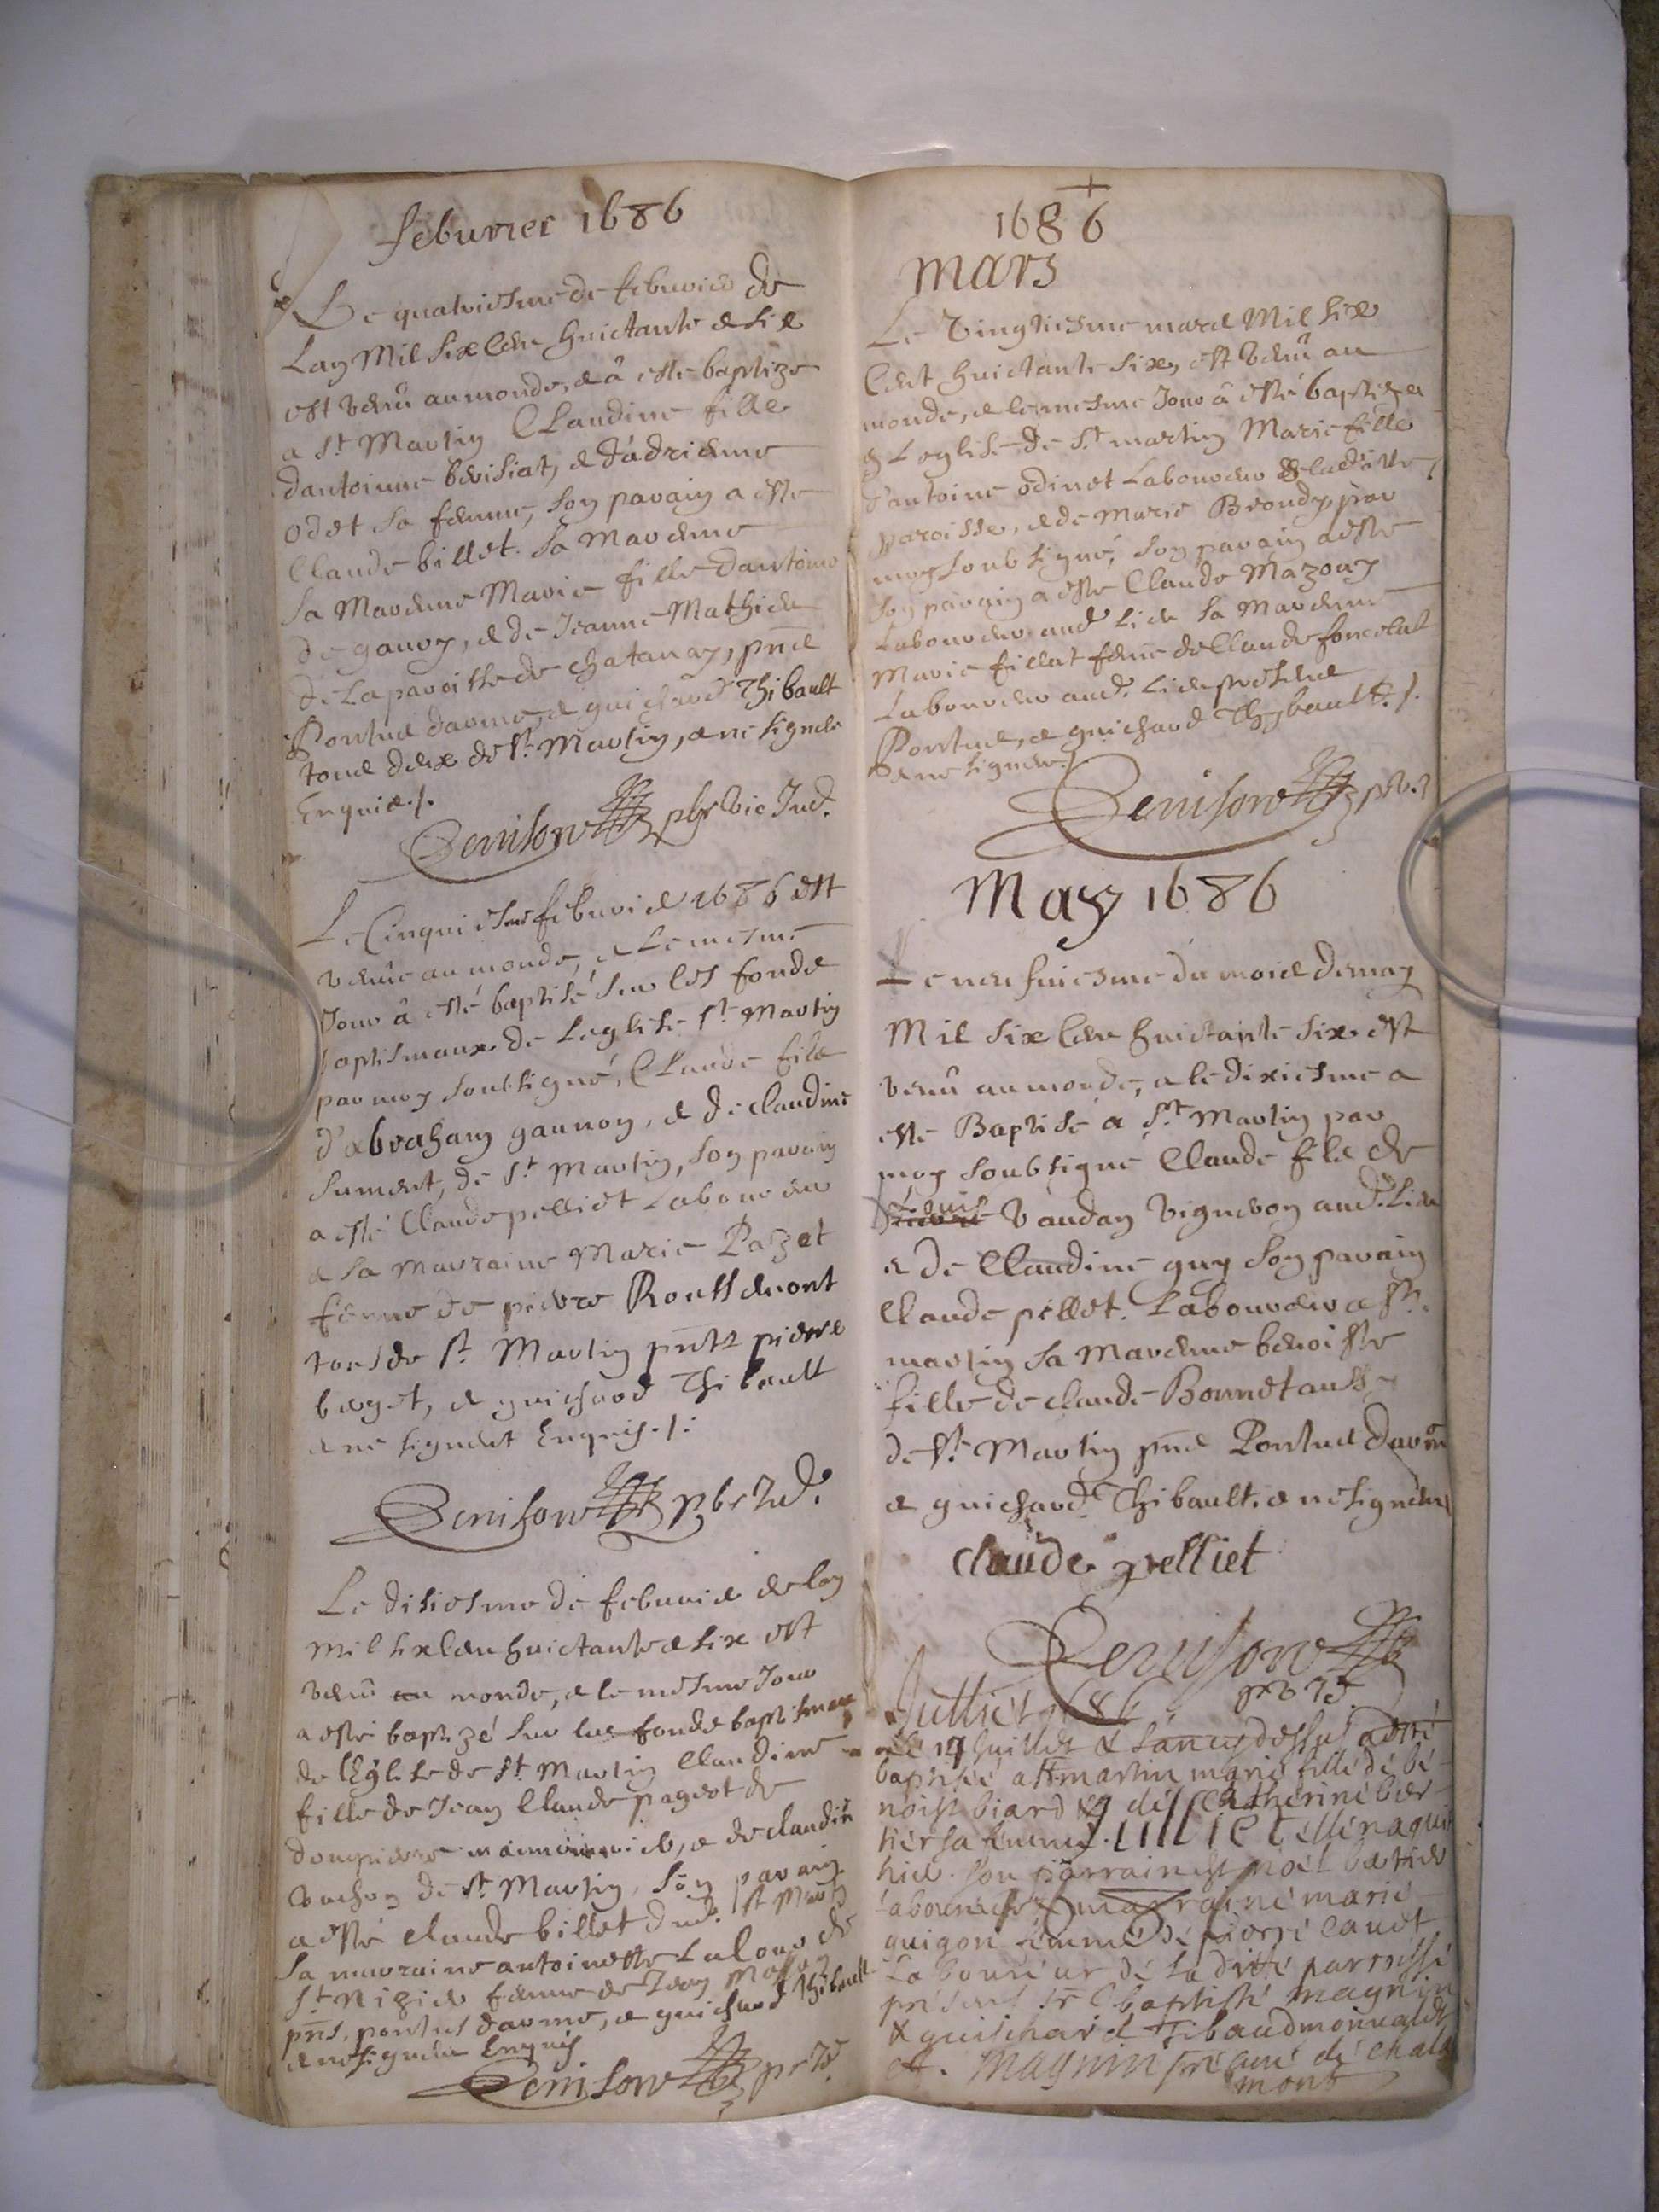 feburier 1686
Le quatriesme de feburier de
Lan Mil six Cens huictante & six
est venu au monde, & a esté baptize
a St Martin Claudine fille
dantoinne berisiat, & d'adrienne
odet sa femme, son parain a esté
Claude billet. Sa Marenne
Sa Marenne Marie fille dantoine
de gaury, & de Jeanne Mathieu
de La paroisse de chatanay, pnts
Pontus darme, & guichard Thibault
tous deux de St Martin, & ne signent
Enquis./.
Denison pbr vic Ind.
Le Cinquiesme feburier 1686 est
venue au monde, & Le mesme
Jour a esté baptisé sur les fonds
baptismaux de Leglise St Martin
par moy soubsigné, Claude fils
d'abraham gaunon, & de claudine
Sument, de St Martin, son parain
a esté Claude pelliet Laboureur
& sa marraine Marie Pazet
femme de pierre Roussemont
tous de St Martin pntz pierre
berget, & guichard Thibault
& ne signent Enquis./.
Denison pbr Ind.
Le disiesme de feburier de lan
mil six cens huictante & six est
venu au monde, & le mesme Jour
a esté baptizé sur les fonds baptismaux
de lEglise de St Martin Claudine
fille de Jean Claude pageot de
dompierre &  de claudine
vuchon de St Martin, Son parain
a esté claude billet dud. St Martin
Sa mauraine antoinette Laloue de
St Nizier femme de Jean
pnts, pontus darme, & guichard Thibault
& ne signent Enquis
Denison pr vd
1686
mars
Le vingtiesme mars Mil six
Cent huictante six, est venu au
monde, & le mesme Jour a esté baptizée
en Leglise de St martin Marie fille
d'antoine odinet Laboureur de ladite
paroisse, & de Marie Brondy, par
moy soub signé, Son parain a esté
Son parain a esté Claude Mazouy
Laboureur aud. Lieu Sa Marenne
Marie fillat femme de Claude foncelat
Laboureur aud. Lieu presens
Pontus, & guichard Thybault./.
& ne signent./.
Denison pbr
May 1686
Le neufuiesme du mois de may
Mil six Cens huictante six est
venu au monde, & le dixiesme a
esté Baptisé a St Martin par
moy soubsigné Claude fils de
Louis Vaudan Vigneron aud. Lieu
& de Claudine guy Son parain
Claude pellet. Laboureur a St
martin Sa Marenne benoiste
fille de claude Bonnet aussy
de St Martin pnts Pontus darme
& guichard Thibault. & ne signent
claude pelliet
Denison
Julliet 1686
Le 14 Juillet & lan cy dessus a esté
baptisée a St martin marie fille de be-
noist biard & de Catherine ber-
tier sa femme. Julliet elle naquit
hier. Son parrain est noel bertier
laboureur & marraine marie
guigon femme de pierre canet
Laboureur de ladite parroisse
presens Sr Cl baptiste magnin
& guischard Tibaud
Magnin pre curé de chala
mont